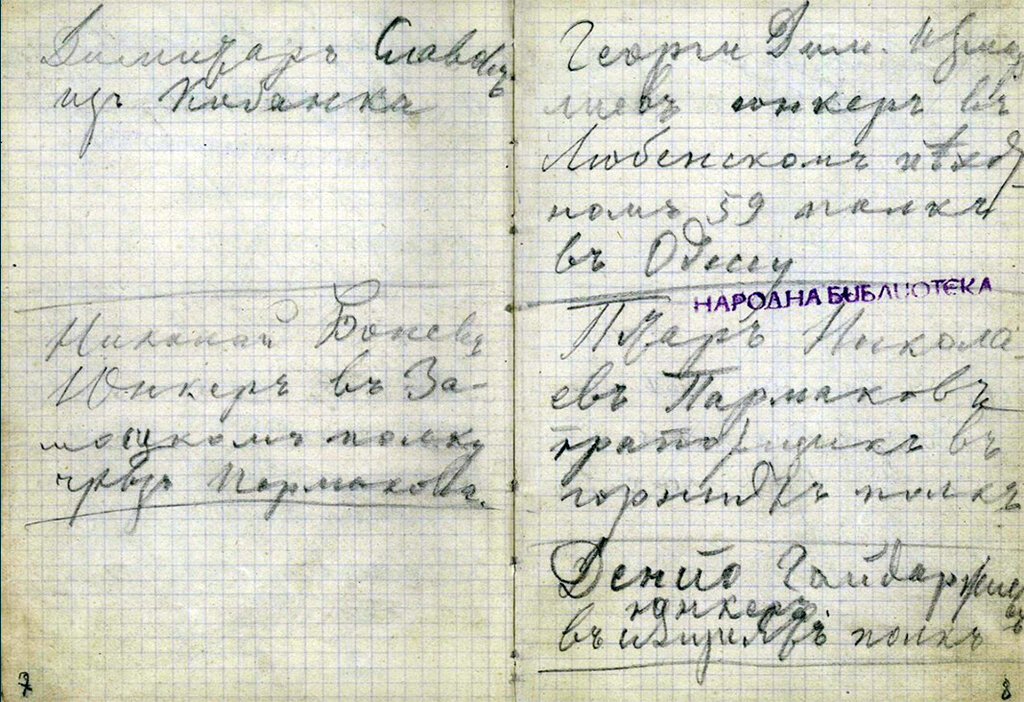 Димитаръ Славовъ
изъ Кубанка
Николай Боневъ
Юнкеръ въ За-
мошкомъ полку
чрезъ Пармакова.
7
Георги Дим.
юнкеръ въ
Любенскомъ пѣхот
номъ 59 полкъ
въ Одессу
НАРОДНА БИБЛИОТЕКА
Никола-
евъ Пармаковъ
прапорщикъ въ
полкъ
Денчо Гайдаржиевъ
юнкеръ
въ полкъ
8